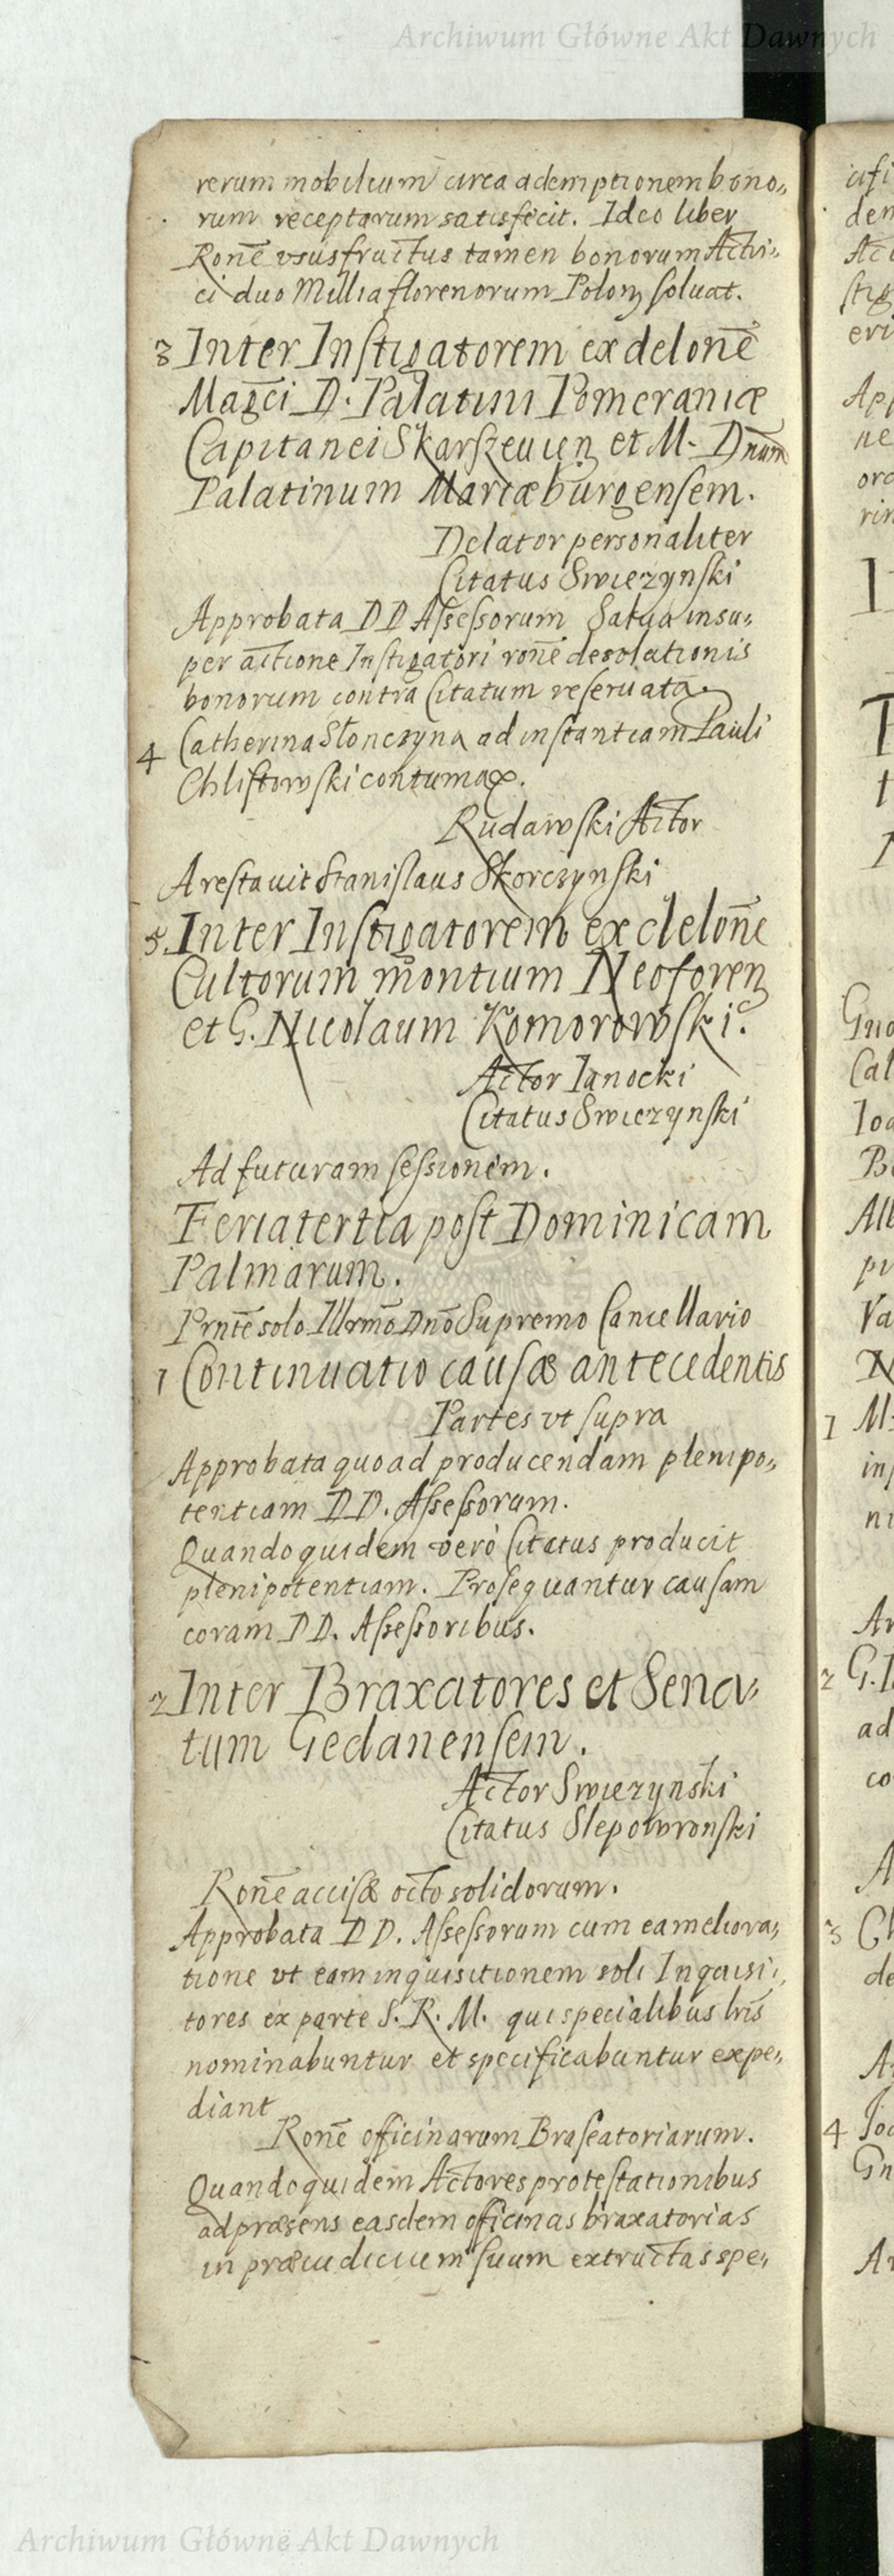 Archiwum Główne Akt Dawnych
rerum mobilium circa ademptionem bono„
rum receptarum satisfecit. Ideo liber
Ronē vsusfructus tamen bonorum Actri„
ci duo Millia florenorum Polon soluat.
3 Inter Instigatorem ex delonē
Magci D. Palatini Pomeraniæ
Capitanei Skarszeuien et M. Dnum
Palatinum Mariæburgensem.
Delator personaliter
Citatus Swiezynski
Approbata DD Assessorum Salua insu„
per actione Instigatori ronē desolationis
bonorum contra Citatum reseruata.
4 Catherina Słonczyna ad instantiam Pauli
Chlistowski contumax.
Rudawski Actor
Arestauit Stanislaus Skorczynski
5. Inter Instigatorem ex delonē
Cultorum montium Neoforen
et G. Nicolaum Komorowski.
Actor Ianocki
Citatus Swiezynski
Ad futuram sessionem.
Feria tertia post Dominicam
Palmarum.
Prntē solo Illrmō Dnō Supremo Cancellario
1 Continuatio causæ antecedentis
Partes vt supra
Approbata quoad producendam plenipo„
tentiam DD. Assessorum.
Quandoquidem verò Citatus producit
plenipotentiam. Prosequantur causam
coram DD. Assessoribus.
2 Inter Braxatores et Sena„
tum Gedanensem.
Actor Swiezynski
Citatus Slepowronski
Ronē accisæ octo solidorum.
Approbata DD. Assessorum cum ea meliora„
tione vt eam inquisitionem soli Inquisi„
tores ex parte S. R. M. qui specialibus lris
nominabuntur et specificabuntur expe„
diant
Ronē officinarum Braseatoriarum.
Quandoquidem Actores protestationibus
ad præsens easdem officinas braxatorias
in præiudicium suum extructas spe„
Archiwum Główne Akt Dawnych